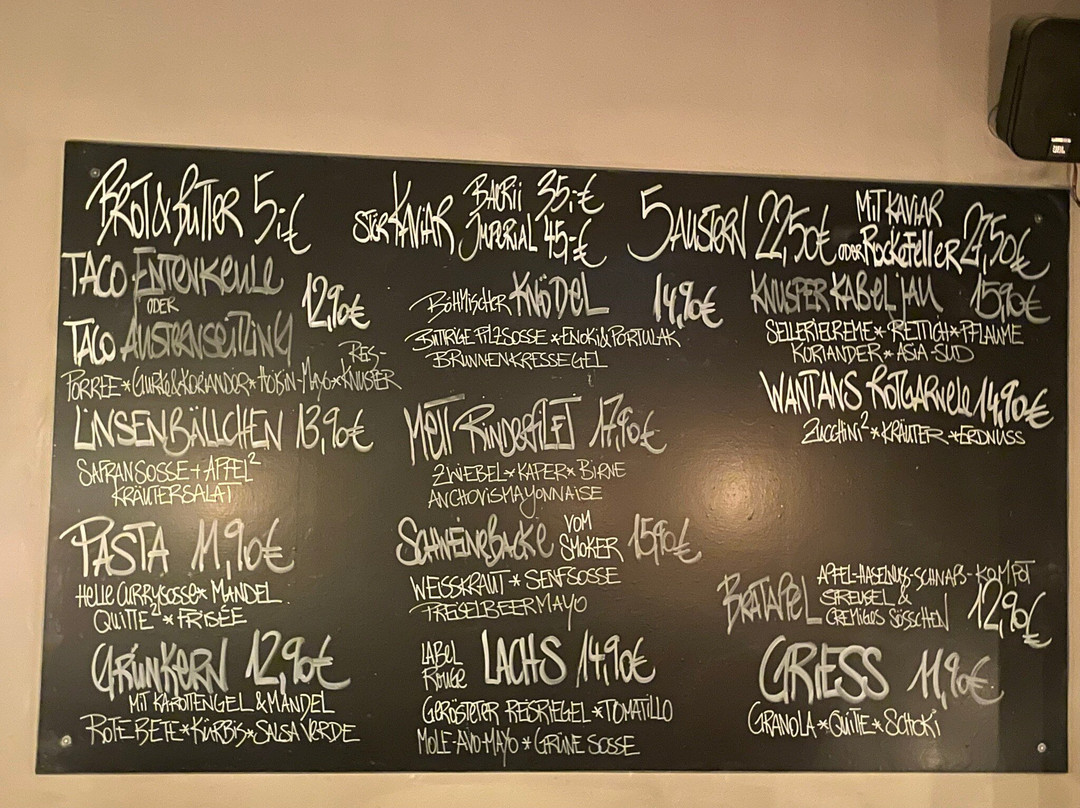 BROT & BUTTER 5,-€
TACO ENTENKEULE
ODER
12,90€
TACO AUSTERNSEITLING
REIS-
PORREE * GURKE & KORIANDER * HOISIN-MAYO * KNUSPER
LINSENBÄLLCHEN 13,90€
SAFRANSOSSE + APFEL²
KRÄUTERSALAT
PASTA 11,90€
HELLE CURRYSOSSE * MANDEL
QUITTE² * FRISÉE
GRÜNKERN 12,90€
MIT KAROTTENGEL & MANDEL
ROTE BETE * KÜRBIS * SALSA VERDE
STÖR KAVIAR
BAERII 35,-€
IMPERIAL 45,-€
BÖHMISCHER KNÖDEL 14,90€
BUTTRIGE PILZSOSSE * ENOKI & PORTULAK
BRUNNENKRESSEGEL
METT RINDERFILET 17,90€
ZWIEBEL * KAPER * BIRNE
ANCHOVISMAYONNAISE
SCHWEINEBACKE VOM SMOKER 15,90€
WEISSKRAUT * SENFSOSSE
PREISELBEERMAYO
LABEL ROUGE LACHS 14,90€
GERÖSTETER REISRIEGEL * TOMATILLO
MOLE-AVO-MAYO * GRÜNE SOSSE
5 AUSTERN 22,50€ MIT KAVIAR
ODER ROCKEFELLER 27,50€
KNUSPER KABELJAU 15,90€
SELLERIECREME * RETTICH * PFLAUME
KORIANDER * ASIA-SUD
WANTANS ROTGARNELE 14,90€
ZUCCHINI² * KRÄUTER * ERDNUSS
BRATAPFEL
APFEL-HASELNUSS-SCHNAPS-KOMPOTT
STREUSEL &
CREMIGES SÖSSCHEN
12,90€
GRIESS 11,90€
GRANOLA * QUITTE * SCHOKI
JBL